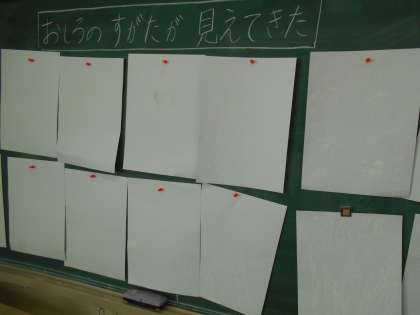 おしろの すがたが 見えてきた